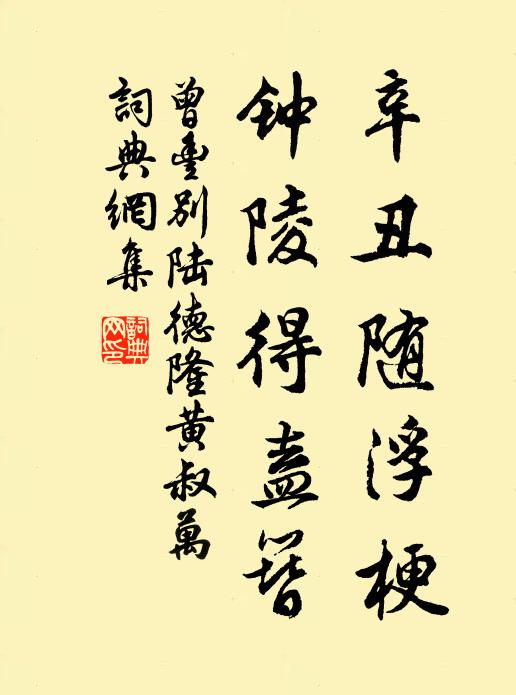 辛丑随浮梗
钟陵得盍簪
曾豊别陆德隆黄叔萬
詞典網集
詞典網印